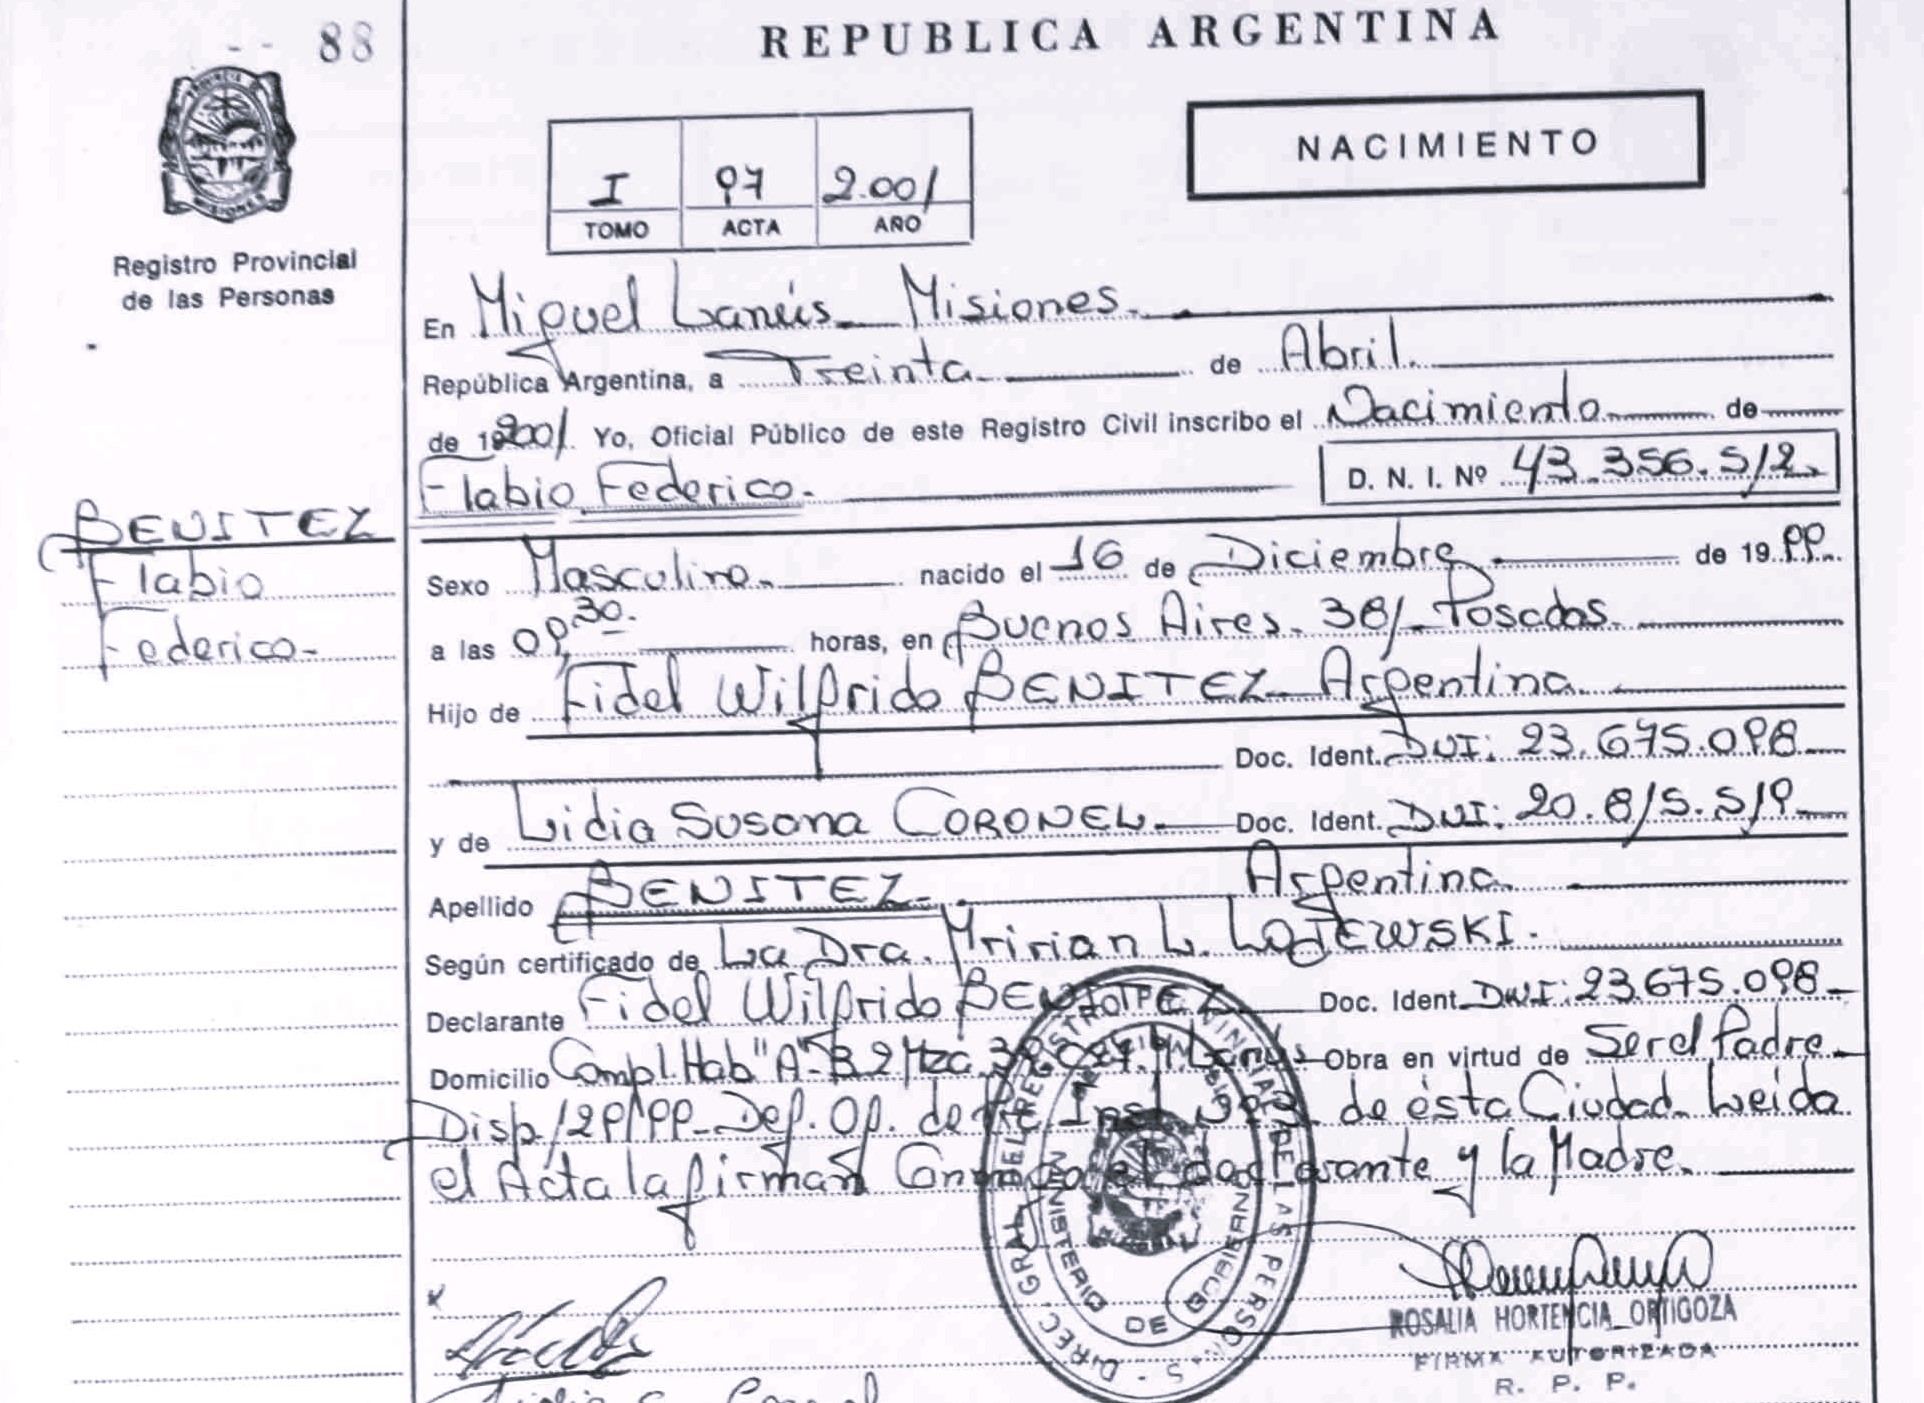 88
REPUBLICA ARGENTINA
NACIMIENTO
I 97 2.001
TOMO ACTA AÑO
PROVINCIA DE
MISIONES
Registro Provincial
de las Personas
En Miguel Lanús - Misiones.
República Argentina, a Treinta de Abril.
de 2001. Yo, Oficial Público de este Registro Civil inscribo el Nacimiento de
Flabio Federico. D. N. I. Nº 43.356.512.
BENITEZ
Flabio
Federico-
Sexo Masculino. nacido el 16 de Diciembre de 1999.
a las 09,30. horas, en Buenos Aires. 381- Posadas.
Hijo de Fidel Wilfrido BENITEZ- Argentina.
Doc. Ident. DNI: 23.675.098
y de Lidia Susana CORONEL. Doc. Ident. DNI: 20.815.519-
Apellido BENITEZ. Argentina.
Según certificado de La Dra. Mririan L. LAJEWSKI.
Declarante Fidel Wilfrido BENITEZ Doc. Ident. DNI: 23.675.098-
Domicilio Compl. Hab "A"- B 2 Mza. Lanús Obra en virtud de Ser el Padre-
Disp 129/99- Def. Of. de Inst. Nº 3 de ésta Ciudad. Leida
el Acta la firman Conmigo el declarante y la Madre.
DIREC. GRAL. DEL REGISTRO PROVINCIAL DE LAS PERSONAS
MINISTERIO DE GOBIERNO
ROSALIA HORTENCIA ORTIGOZA
FIRMA AUTORIZADA
R. P. P.